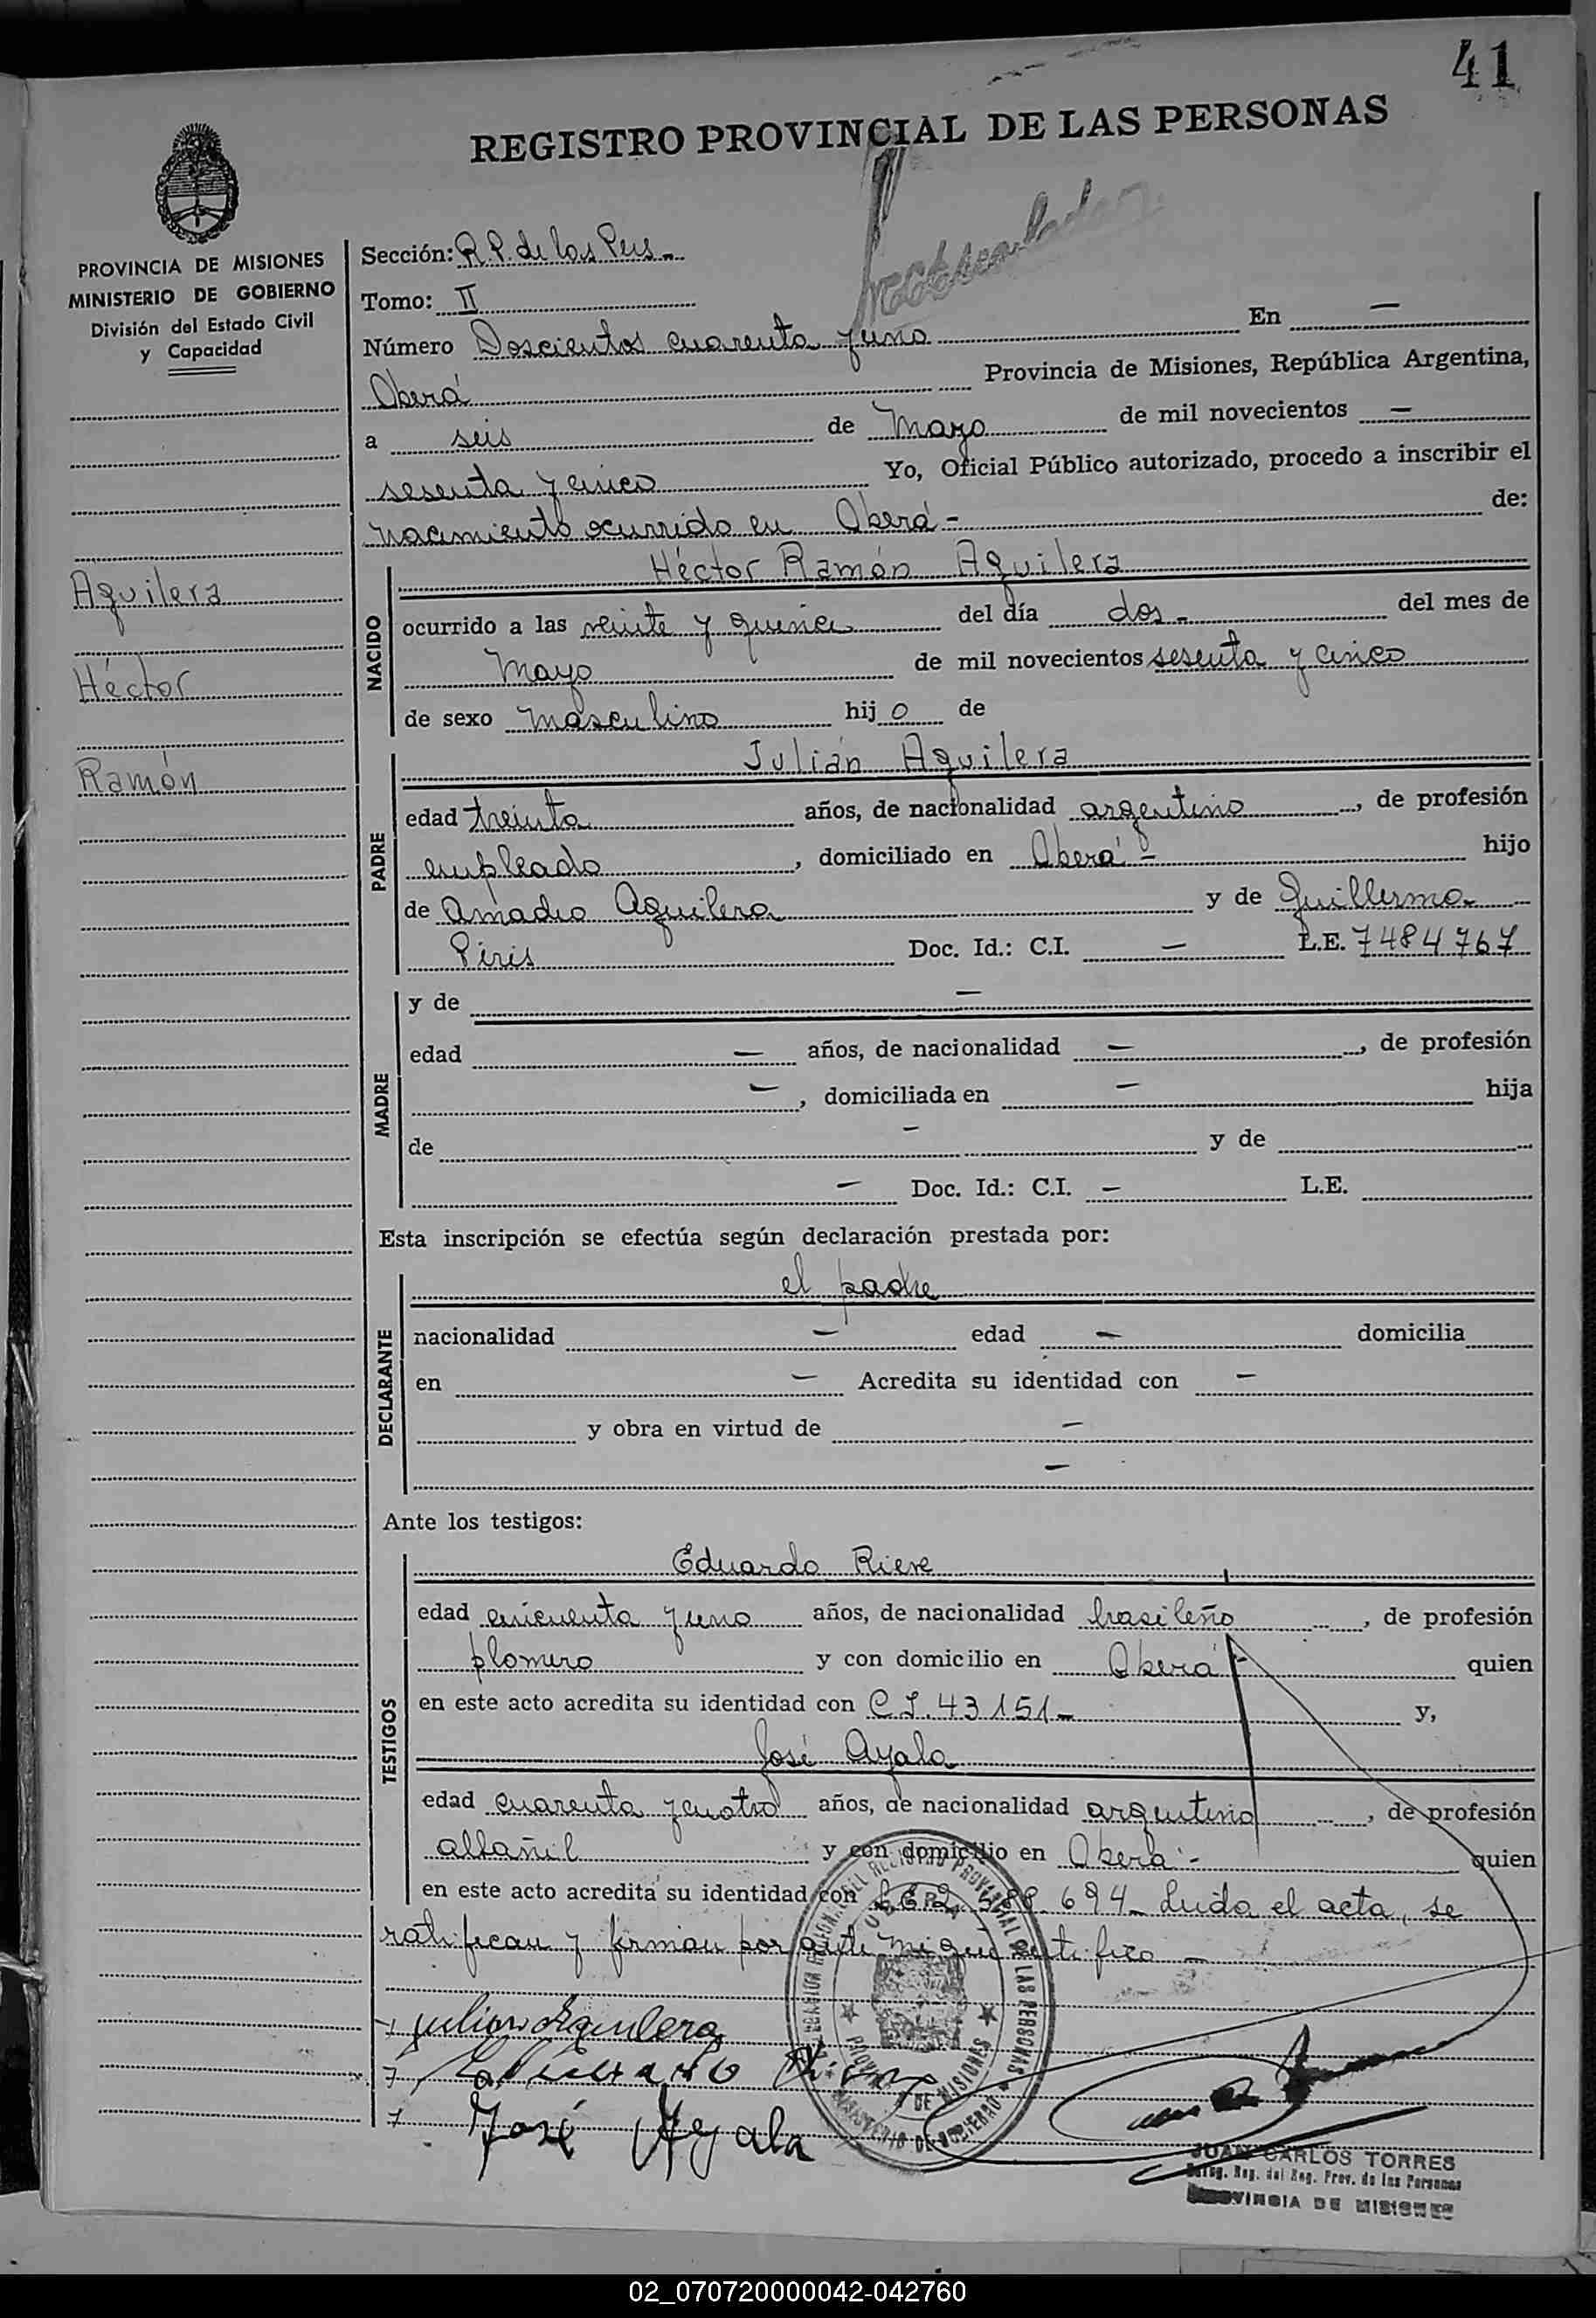 41
REGISTRO PROVINCIAL DE LAS PERSONAS
PROVINCIA DE MISIONES
MINISTERIO DE GOBIERNO
División del Estado Civil
y Capacidad
Aguilera
Héctor
Ramón
Sección: R.P. de las Pers -
Tomo: II
Número Doscientos cuarenta y uno En —
Oberá Provincia de Misiones, República Argentina,
a seis de Mayo de mil novecientos —
sesenta y cinco Yo, Oficial Público autorizado, procedo a inscribir el
nacimiento ocurrido en Oberá - de:
NACIDO
Héctor Ramón Aguilera
ocurrido a las veinte y quince del día dos - del mes de
Mayo de mil novecientos sesenta y cinco
de sexo masculino hij o de
PADRE
Julián Aguilera
edad treinta años, de nacionalidad argentino, de profesión
empleado, domiciliado en Oberá - hijo
de Amadio Aguilera y de Guillerma
Piris Doc. Id.: C.I. — L.E. 7484767
MADRE
y de —
edad — años, de nacionalidad —, de profesión
—, domiciliada en — hija
de — y de
— Doc. Id.: C.I. — L.E.
Esta inscripción se efectúa según declaración prestada por:
DECLARANTE
el padre
nacionalidad — edad — domicilia
en — Acredita su identidad con —
y obra en virtud de —
—
Ante los testigos:
TESTIGOS
Eduardo Riere
edad cincuenta y uno años, de nacionalidad brasileño, de profesión
plomero y con domicilio en Oberá - quien
en este acto acredita su identidad con C I. 43151 - y,
José Ayala
edad cuarenta y cuatro años, de nacionalidad argentino, de profesión
albañil y con domicilio en Oberá - quien
en este acto acredita su identidad con 694 - Leida el acta, se
ratifican y firman por ante mi que certifico —
Julian Aguilera
José Ayala
JUAN CARLOS TORRES
Reg. del Reg. Prov. de las Personas
PROVINCIA DE MISIONES
02_070720000042-042760